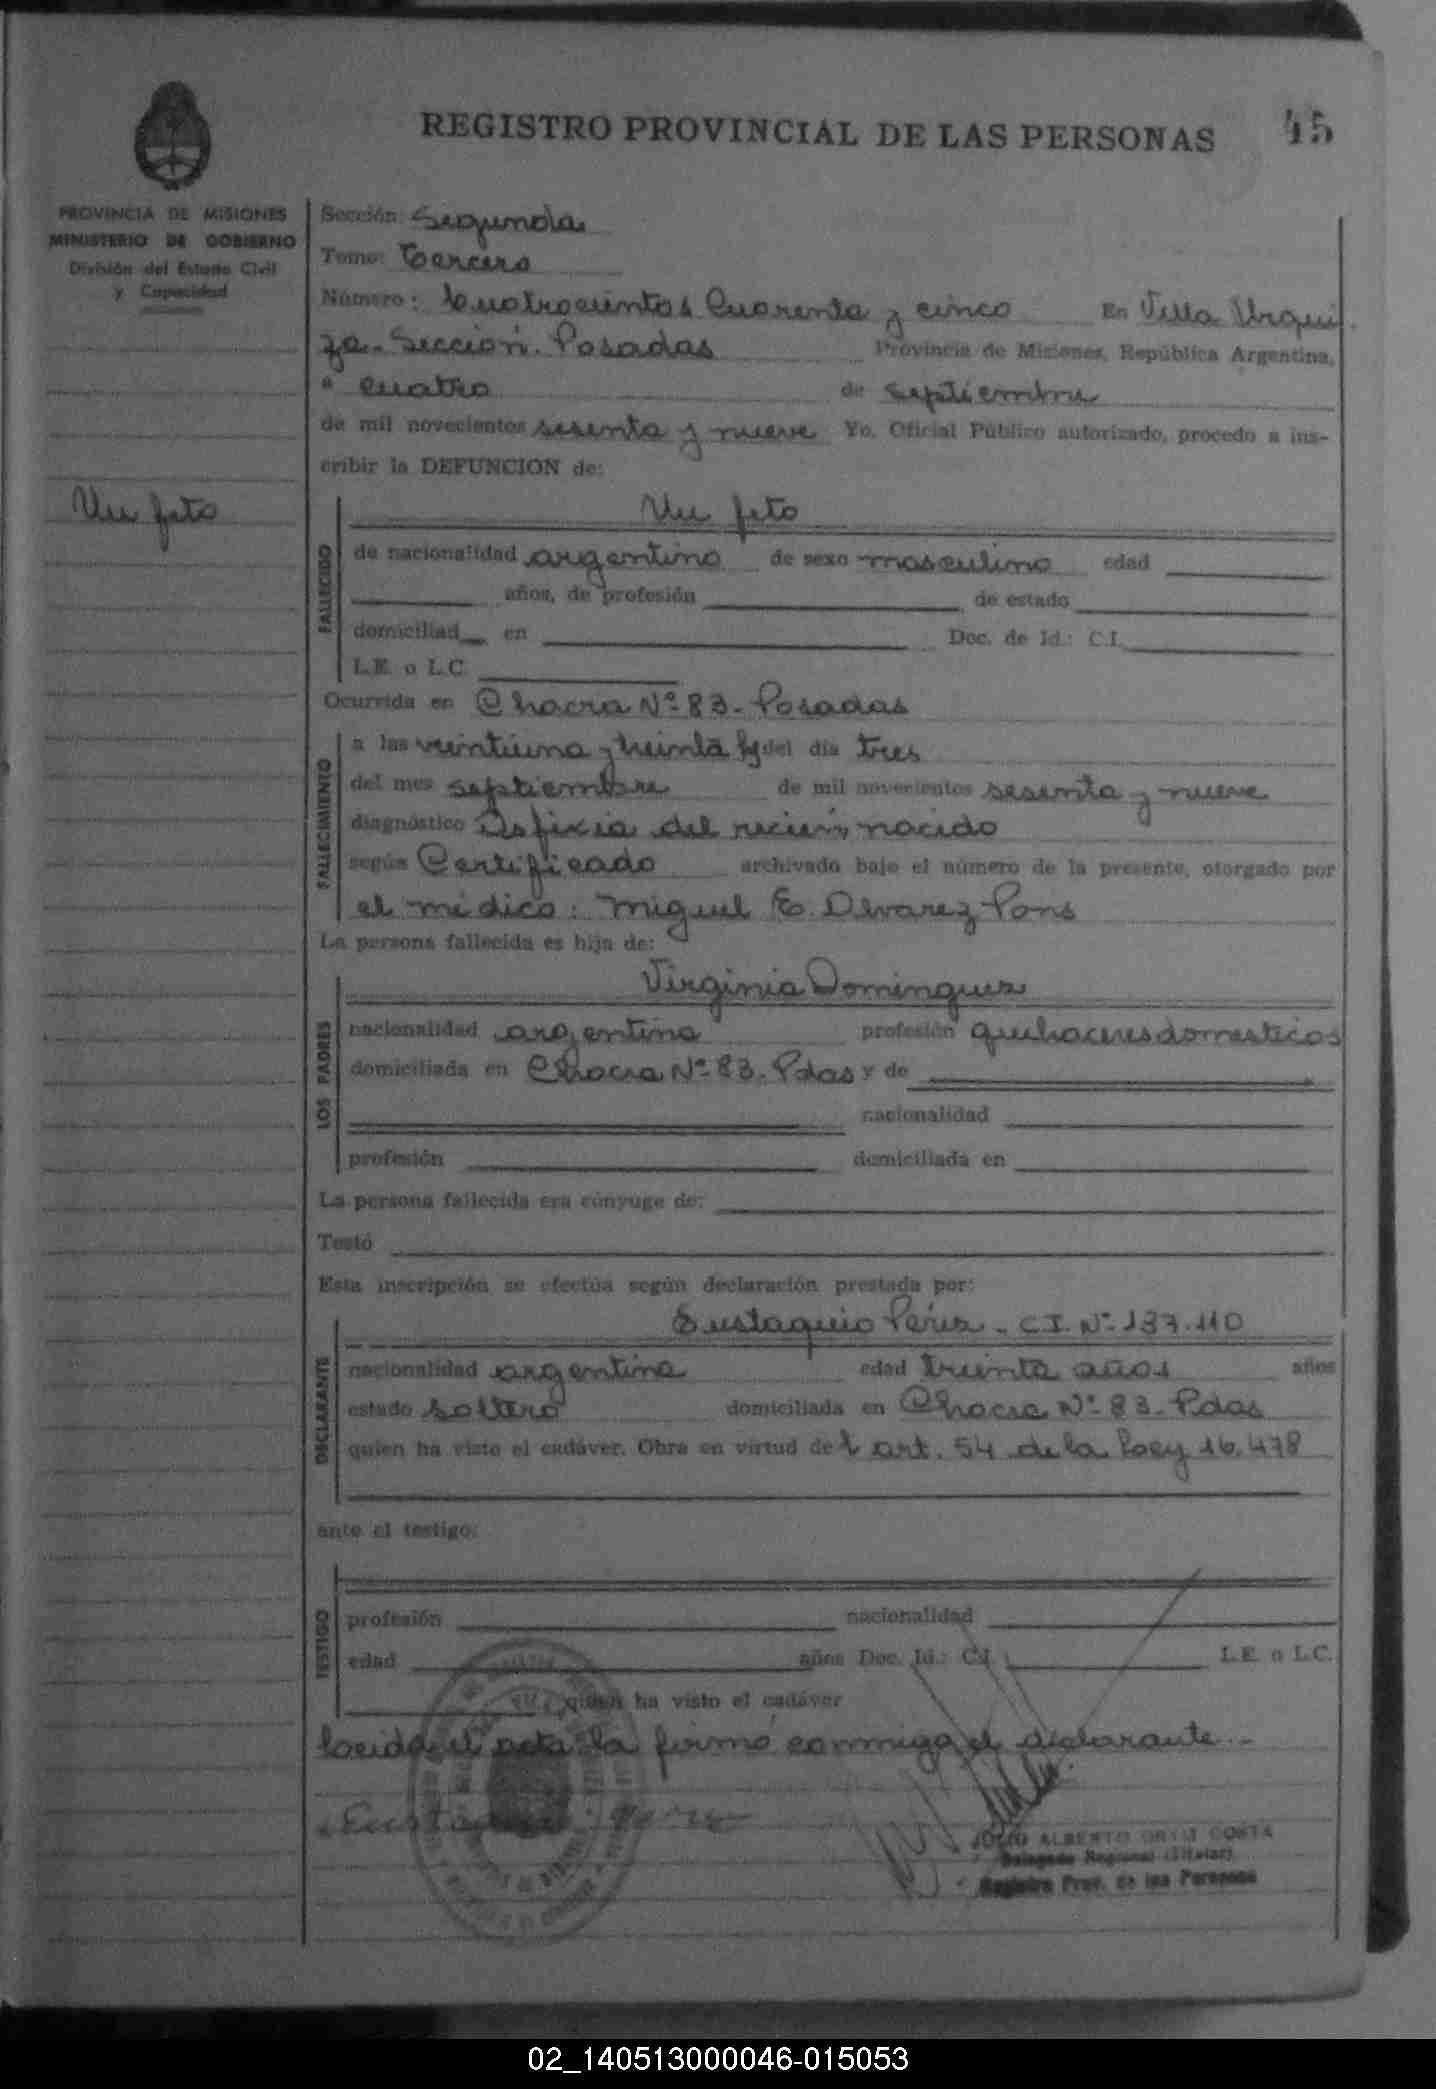 REGISTRO PROVINCIAL DE LAS PERSONAS 45
PROVINCIA DE MISIONES
MINISTERIO DE GOBIERNO
División del Estado Civil
y Capacidad
Un feto
Sección: Segunda
Tomo: Tercero
Número: Cuatrocientos Cuarenta y cinco En Villa Urqui
za - Sección. Posadas Provincia de Misiones, República Argentina,
a cuatro de septiembre
de mil novecientos sesenta y nueve Yo, Oficial Público autorizado, procedo a ins-
cribir la DEFUNCION de:
FALLECIDO
Un feto
de nacionalidad argentino de sexo masculino edad
años, de profesión de estado
domiciliad en Doc. de Id.: C.I.
L.E. o L.C.
Ocurrida en Chacra Nº 83 - Posadas
FALLECIMIENTO
a las veintiuna y treinta hs del día tres
del mes septiembre de mil novecientos sesenta y nueve
diagnóstico Asfixia del recién nacido
según Certificado archivado bajo el número de la presente, otorgado por
el médico: Miguel E. Alvarez Pons
La persona fallecida es hija de:
LOS PADRES
Virginia Dominguez
nacionalidad argentina profesión quehaceres domesticos
domiciliada en Chacra Nº 83. Pdas y de
nacionalidad
profesión domiciliada en
La persona fallecida era cónyuge de:
Testó
Esta inscripción se efectúa según declaración prestada por:
DECLARANTE
Eustaquio Pérez - C.I. Nº 137.110
nacionalidad argentina edad treinta años años
estado soltero domiciliada en Chacra Nº 83. Pdas
quien ha visto el cadáver. Obra en virtud del art. 54 de la Ley 16.478
ante el testigo:
TESTIGO
profesión nacionalidad
edad años Doc. Id.: C.I. L.E. o L.C.
quien ha visto el cadáver
Leida el acta la firmó conmigo el declarante.-
JULIO ALBERTO ORTIZ COSTA
Delegado Regional (Titular)
Registro Prov. de las Personas
02_140513000046-015053